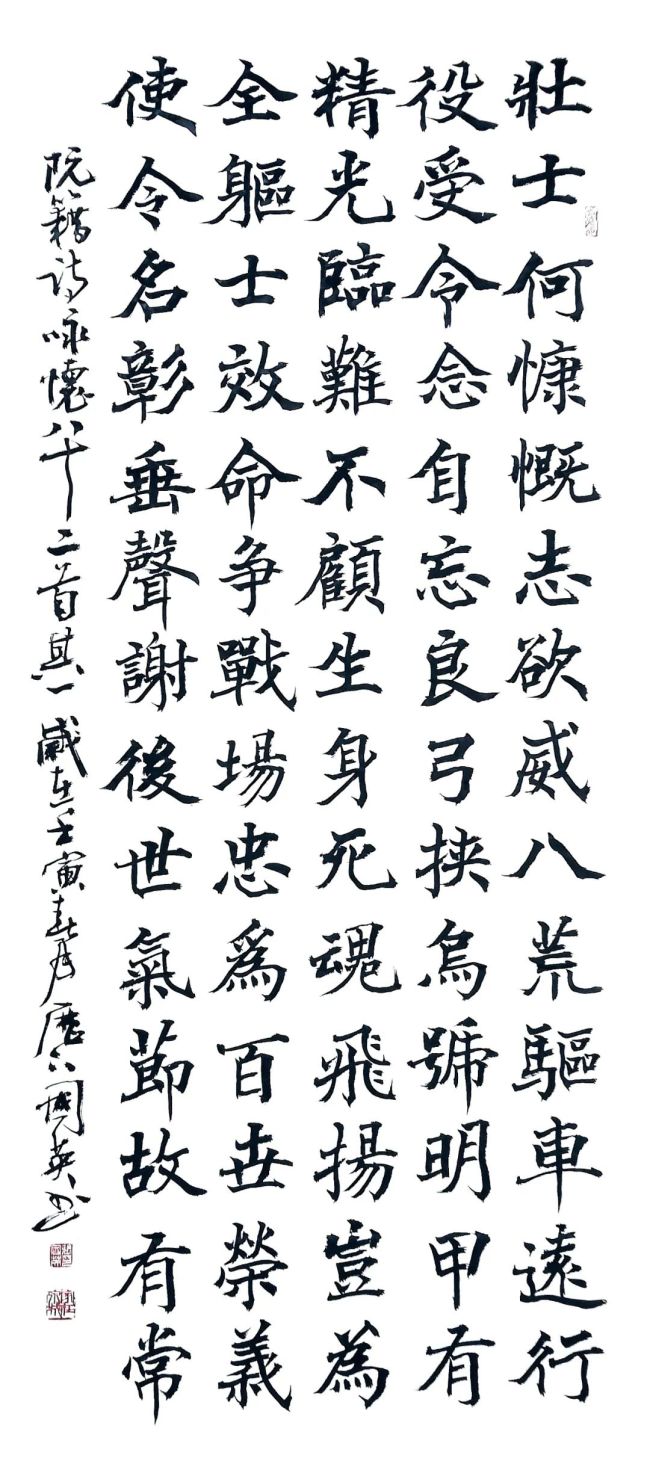 壯士何慷慨志欲威八荒驅車遠行
役受令念自忘良弓挾烏號明甲有
精光臨難不顧生身死魂飛揚豈為
全軀士效命爭戰場忠為百世榮義
使令名彰垂聲謝後世氣節故有常
阮籍詩咏懷八十二首其一歲在壬寅春月 國英书